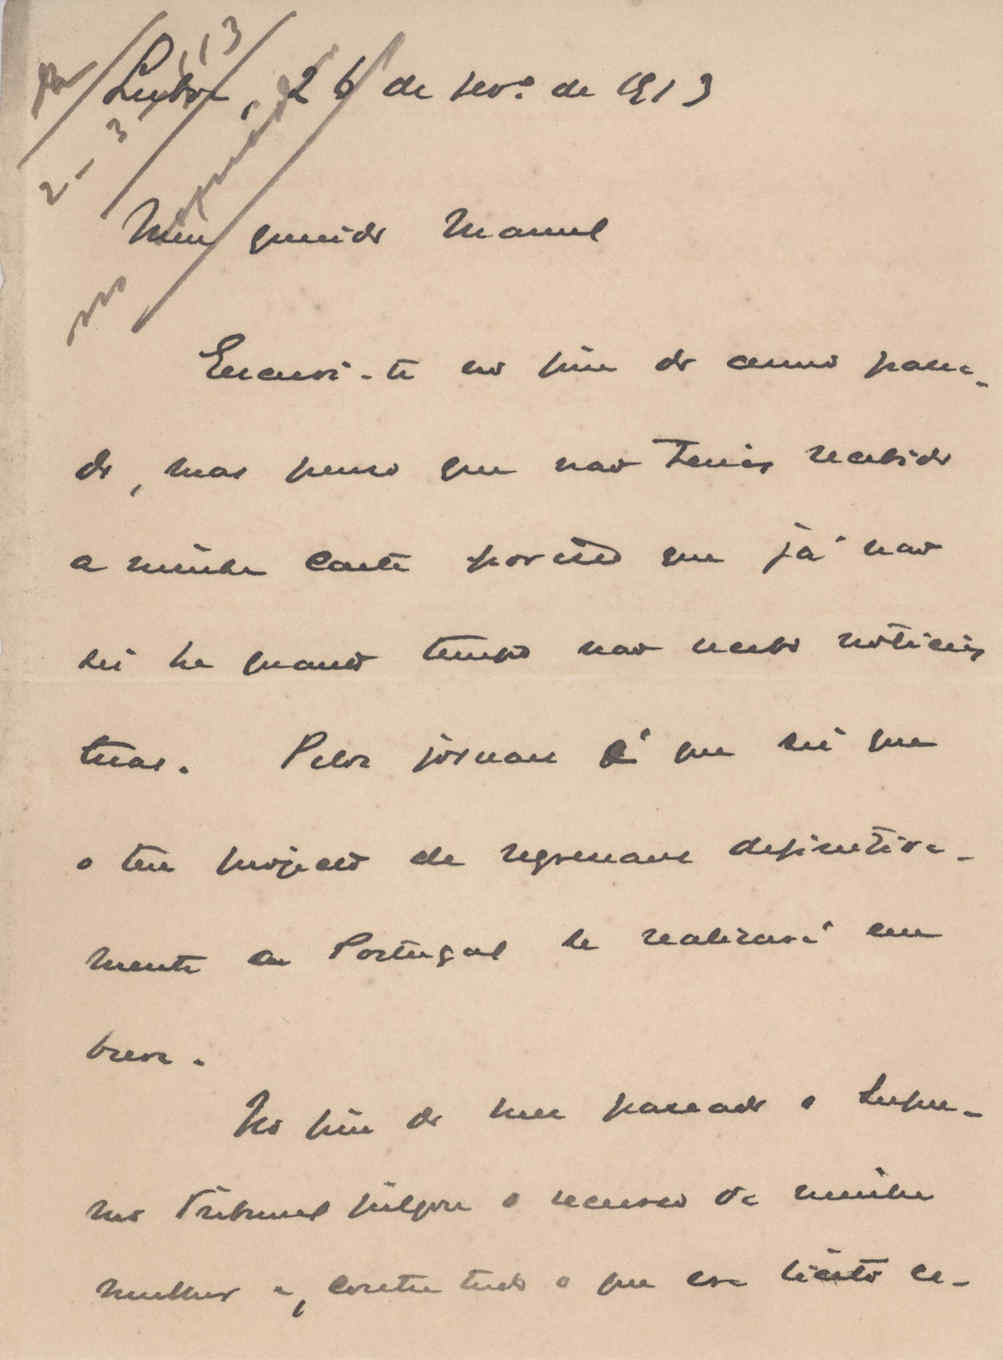 Lisboa, 26 de fev.º de 1913
13
2-3
Meu querido Manuel
Escrevi-te no fim do anno passa-
do, mas penso que não terias recebido
a minha carta por isso que já não
sei ha quanto tempo não recebo noticias
tuas. Pelos jornaes é que sei que
o teu projecto de regressares definitiva-
mente a Portugal se realizará em
breve.
No fim do mez passado o Supre-
mo Tribunal julgou o recurso de minha
mulher e, contra tudo o que era licito es-